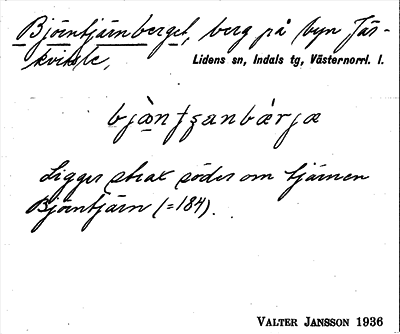 Björntjärnberget, berg på byn Jär-
kvitsle,
Lidens sn, Indals tg, Västernorrl. l.
Ligger strax söder om tjärnen
Björntjärn (=184).
VALTER JANSSON 1936